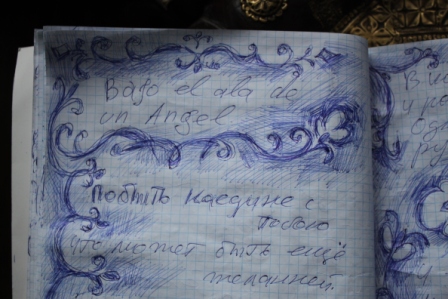 Bajo el ala de
un Angel
Побыть наедине с
тобою
что может быть ещё
желанней